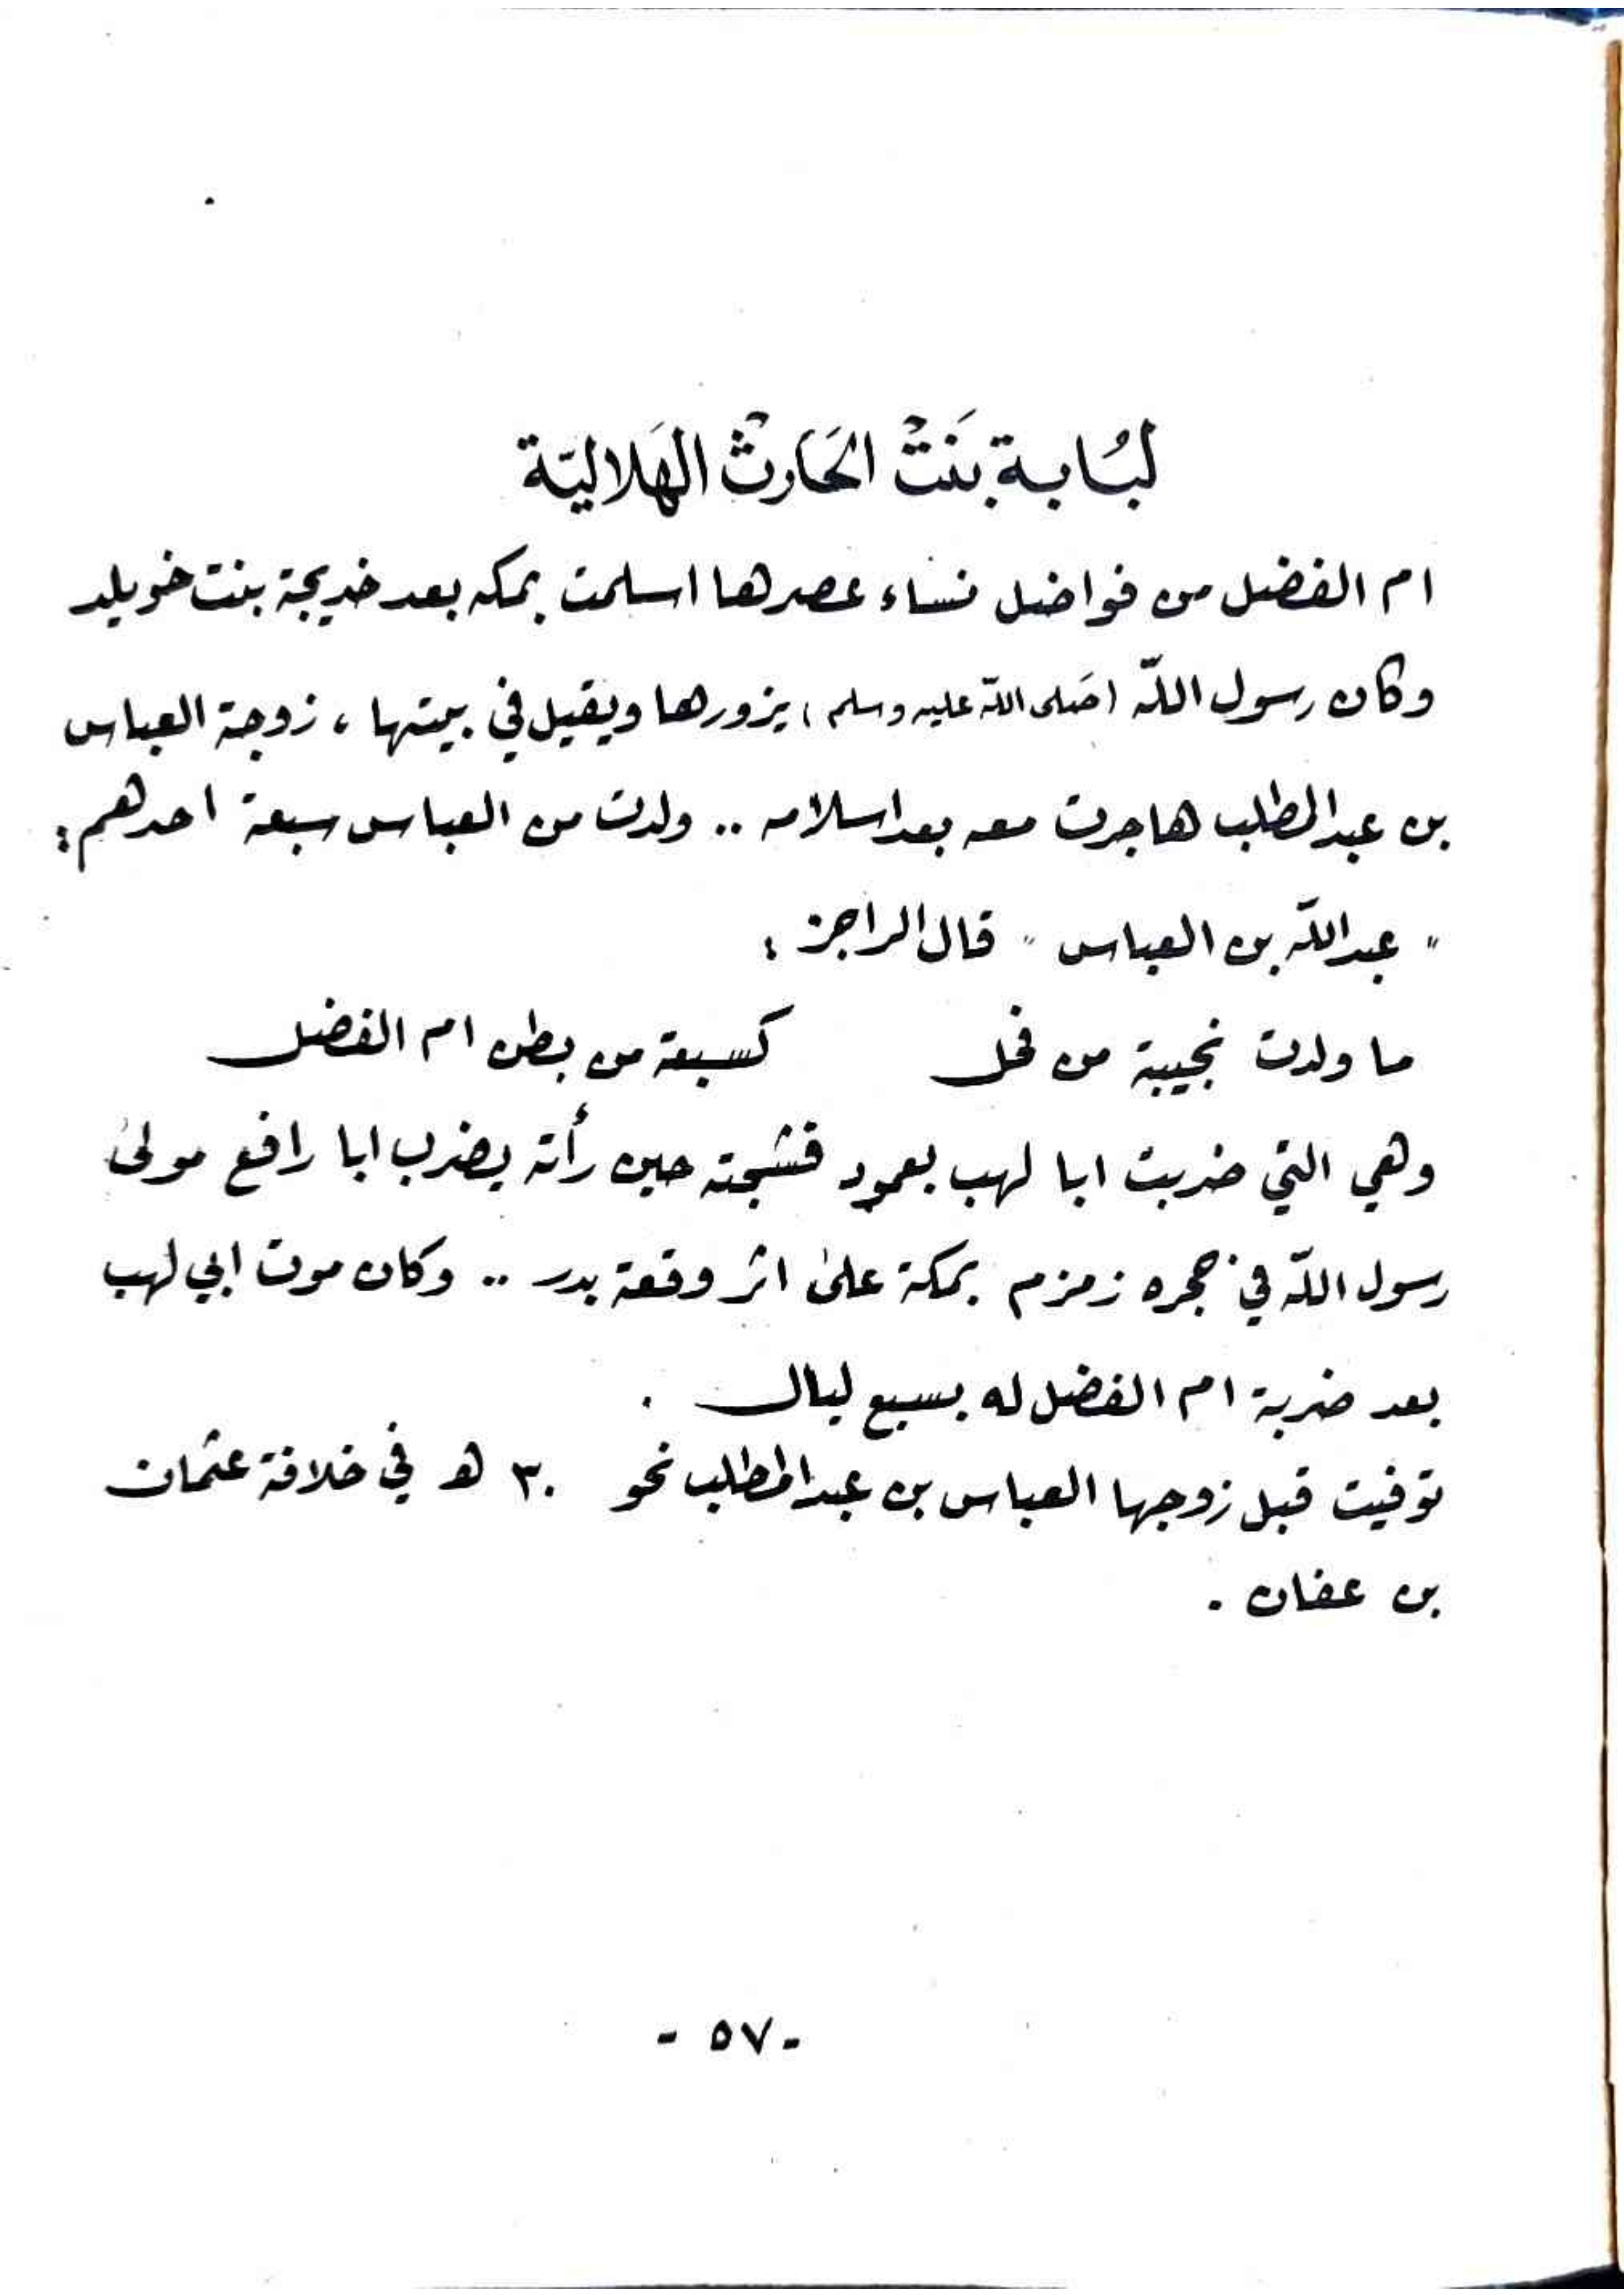 لبُابة بَنتْ الحَارثْ الهَلاليّة
ام الفضل من فواضل نساء عصرها اسلمت بمكه بعد خديجة بنت خويلد
وكان رسول اللّه (صَلى اللّه عليه وسلم) يزورها ويقيل في بيتها ، زوجة العباس
بن عبد المطلب هاجرت معه بعد اسلامه .. ولدت من العباس سبعة احدهم :
" عبد اللّه بن العباس " قال الراجز :
ما ولدت نجيبة من فحل كسبعة من بطن ام الفضل
وهي التي ضربت ابا لهب بعمود فشجته حين رأته يضرب ابا رافع مولىٰ
رسول اللّه في حجره زمزم بمكة علىٰ اثر وقعة بدر .. وكان موت ابي لهب
بعد ضربة ام الفضل له بسبع ليال .
توفيت قبل زوجها العباس بن عبد المطلب نحو ٣٠ هـ في خلافة عثمان
بن عفان .
- ٥٧ -